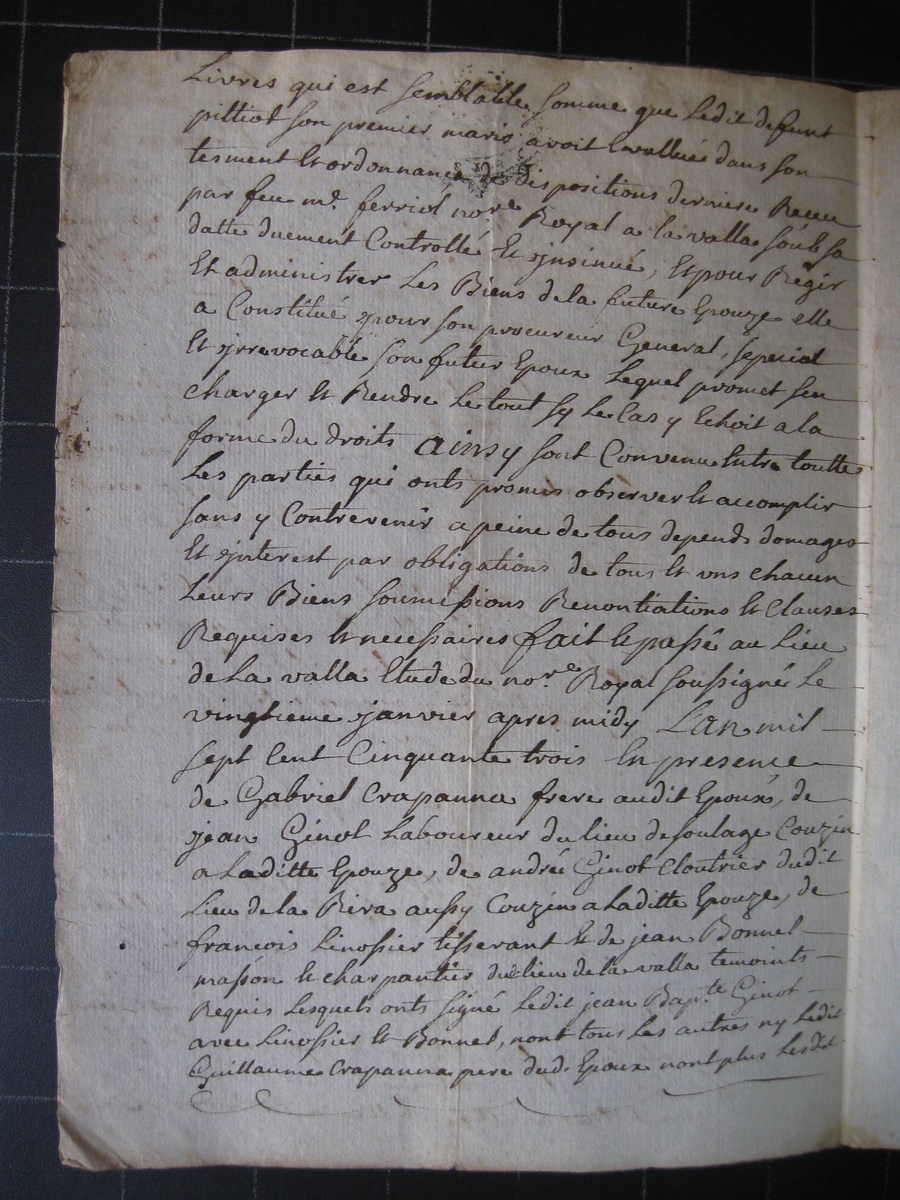 Livres qui est semblable somme que ledit defunt
pittiot son premier mario avoit Evalluée dans son
testment Et ordonnance de dispositions derniere Receu
par feu mr. ferriol nore. Royal a la valla soub sa
datte duement Controllé Et jnsinué, Et pour Regir
Et administrer Les Biens de la future Epouze elle
a Constitué pour son procureur General, special
Et jrrevocable son futur Epoux Lequel promet sen
charger Et Rendre Le tout sy Le Cas y Echoit a la
forme du droits ainsy sont Convenu Entre toutte
Les parties qui onts promis observer Et accomplir
sans y Contrevenir a peine de tous depends domages
Et jnterest par obligations de tous Et uns chacun
Leurs Biens soumissions Renontiations Et Clauses
Requises Et necessaires fait Et passé au Lieu
de La valla Etude du nore. Royal soussigné Le
vingtieme janvier apres midy L'an mil
sept Cent Cinquante trois En presence
de Gabriel Crapanna frere audit Epoux, de
jean Ginot Laboureur du lieu de soulage Couzin
a Laditte Epouze, de andré Ginot Cloutrier dudit
Lieu de la Riva aussy Couzin a Laditte Epouze, de
francois Linossier tisserant Et de jean Bonnel
masson Et charpantier du Lieu de la valla temoints
Requis Lesquels onts signé Ledit jean Bapte. Ginot
avec Linossier Et Bonnel, nont tous Les autres ny Ledit
Guillaume Crapanna pere dud. Epoux nont plus Lesdit